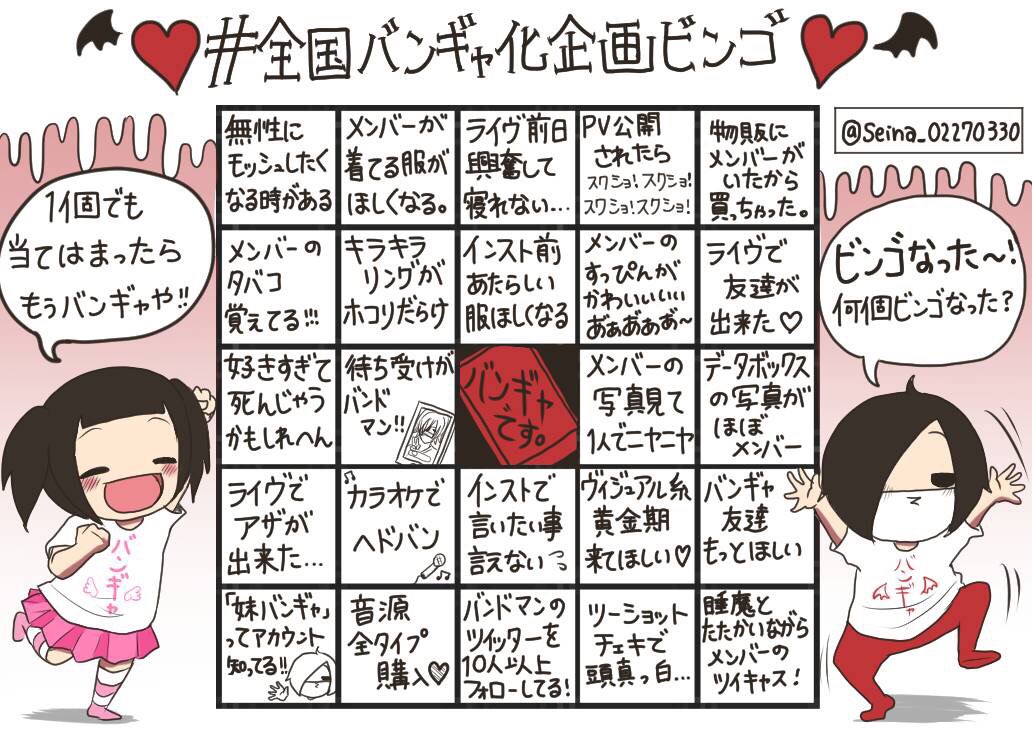 #全国バンギャ化企画ビンゴ
@Seina_02270330
1個でも
当てはまったら
もうバンギャや!!
ビンゴなった〜!
何個ビンゴなった?
無性に
モッシュしたく
なる時がある
メンバーが
着てる服が
ほしくなる。
ライヴ前日
興奮して
寝れない...
PV公開
されたら
スクショ!スクショ!
スクショ!スクショ!
物販に
メンバーが
いたから
買っちゃった。
メンバーの
タバコ
覚えてる!!!
キラキラ
リングが
ホコリだらけ
インスト前
あたらしい
服ほしくなる
メンバーの
すっぴんが
かわいいぃぃ
ああああ〜
ライヴで
友達が
出来た♡
好きすぎて
死んじゃう
かもしれへん
待ち受けが
バンド
マン!!
バンギャ
です。
メンバーの
写真見て
1人でニヤニヤ
データボックス
の写真が
ほぼ
メンバー
ライヴで
アザが
出来た...
カラオケで
ヘドバン
インストで
言いたい事
言えない
ヴィジュアル系
黄金期
来てほしい♡
バンギャ
友達
もっとほしい
「妹バンギャ」
ってアカウント
知ってる!!
音源
全タイプ
購入♥
バンドマンの
ツイッターを
10人以上
フォローしてる!
ツーショット
チェキで
頭真っ白...
睡魔と
たたかいながら
メンバーの
ツイキャス!
バンギャ
バンギャ